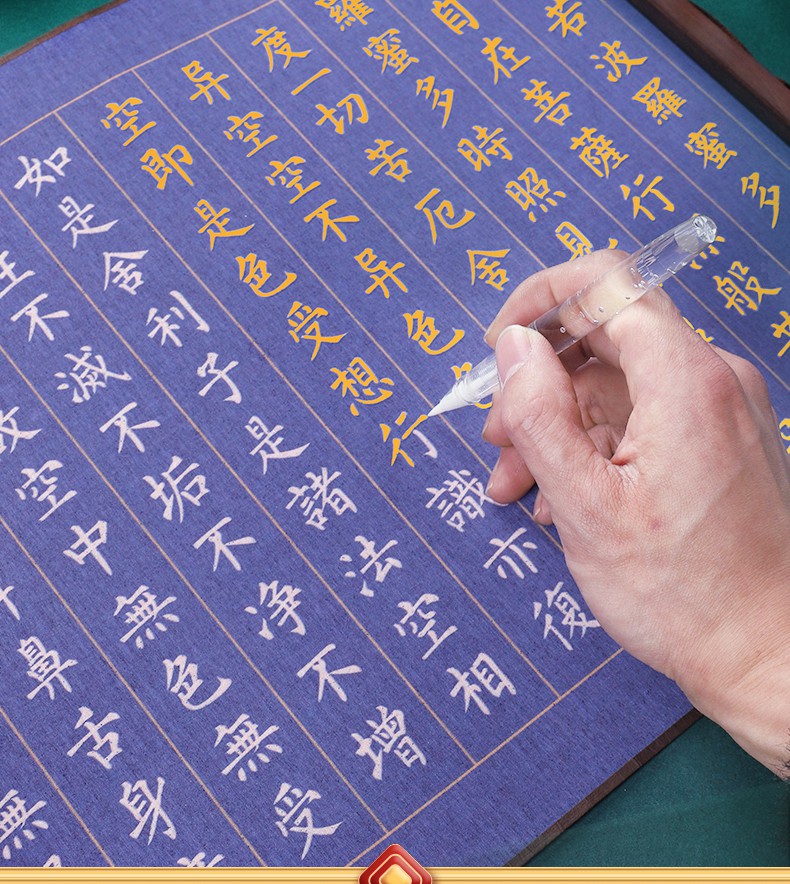 若波羅蜜多
自在菩薩行深般若
羅蜜多時照見
度一切苦厄舍
异空空不异色色
空即是色受想行識亦復
如是舍利子是諸法空相
不滅不垢不净不增
故空中無色無受
鼻舌身
無